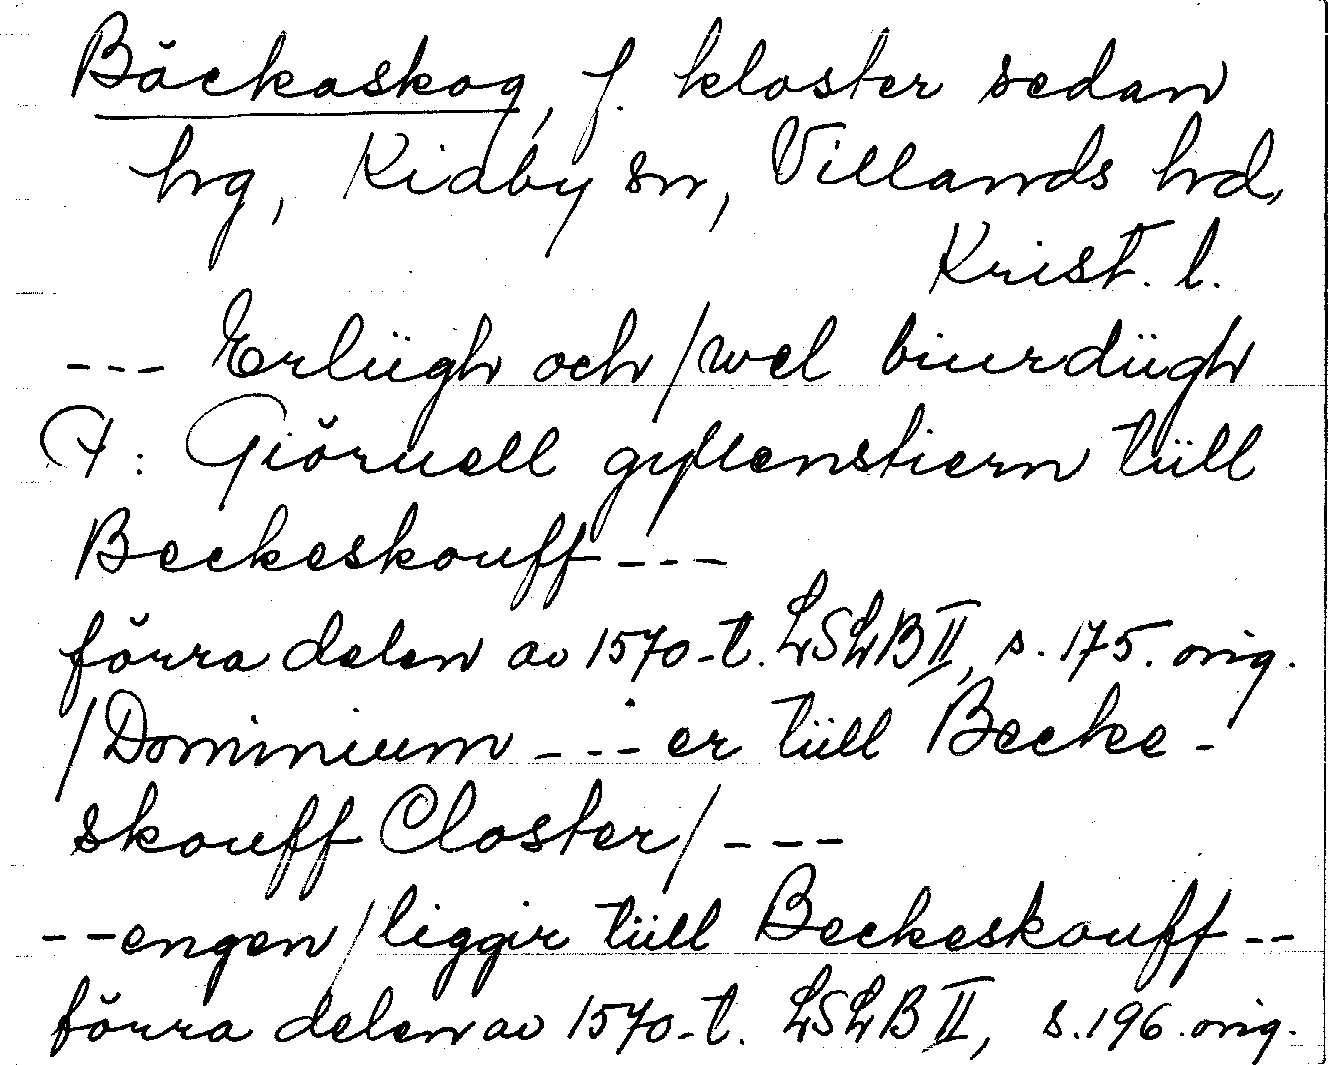 Bäckaskog, f. kloster sedan
hrg, Kiaby sn, Villands hrd,
Krist. l.
--- Erlügh och / wel biurdügh
A: Giöruell gyllenstiern tüll
Beckeskouff ---
förra delen av 1570-t. LSLB II, s. 175. orig.
/Dominium --- er tüll Becke-
skouff Closter/ ---
-- engen / liggir tüll Beckeskouff --
förra delen av 1570-t. LSLB II, s. 196. orig.